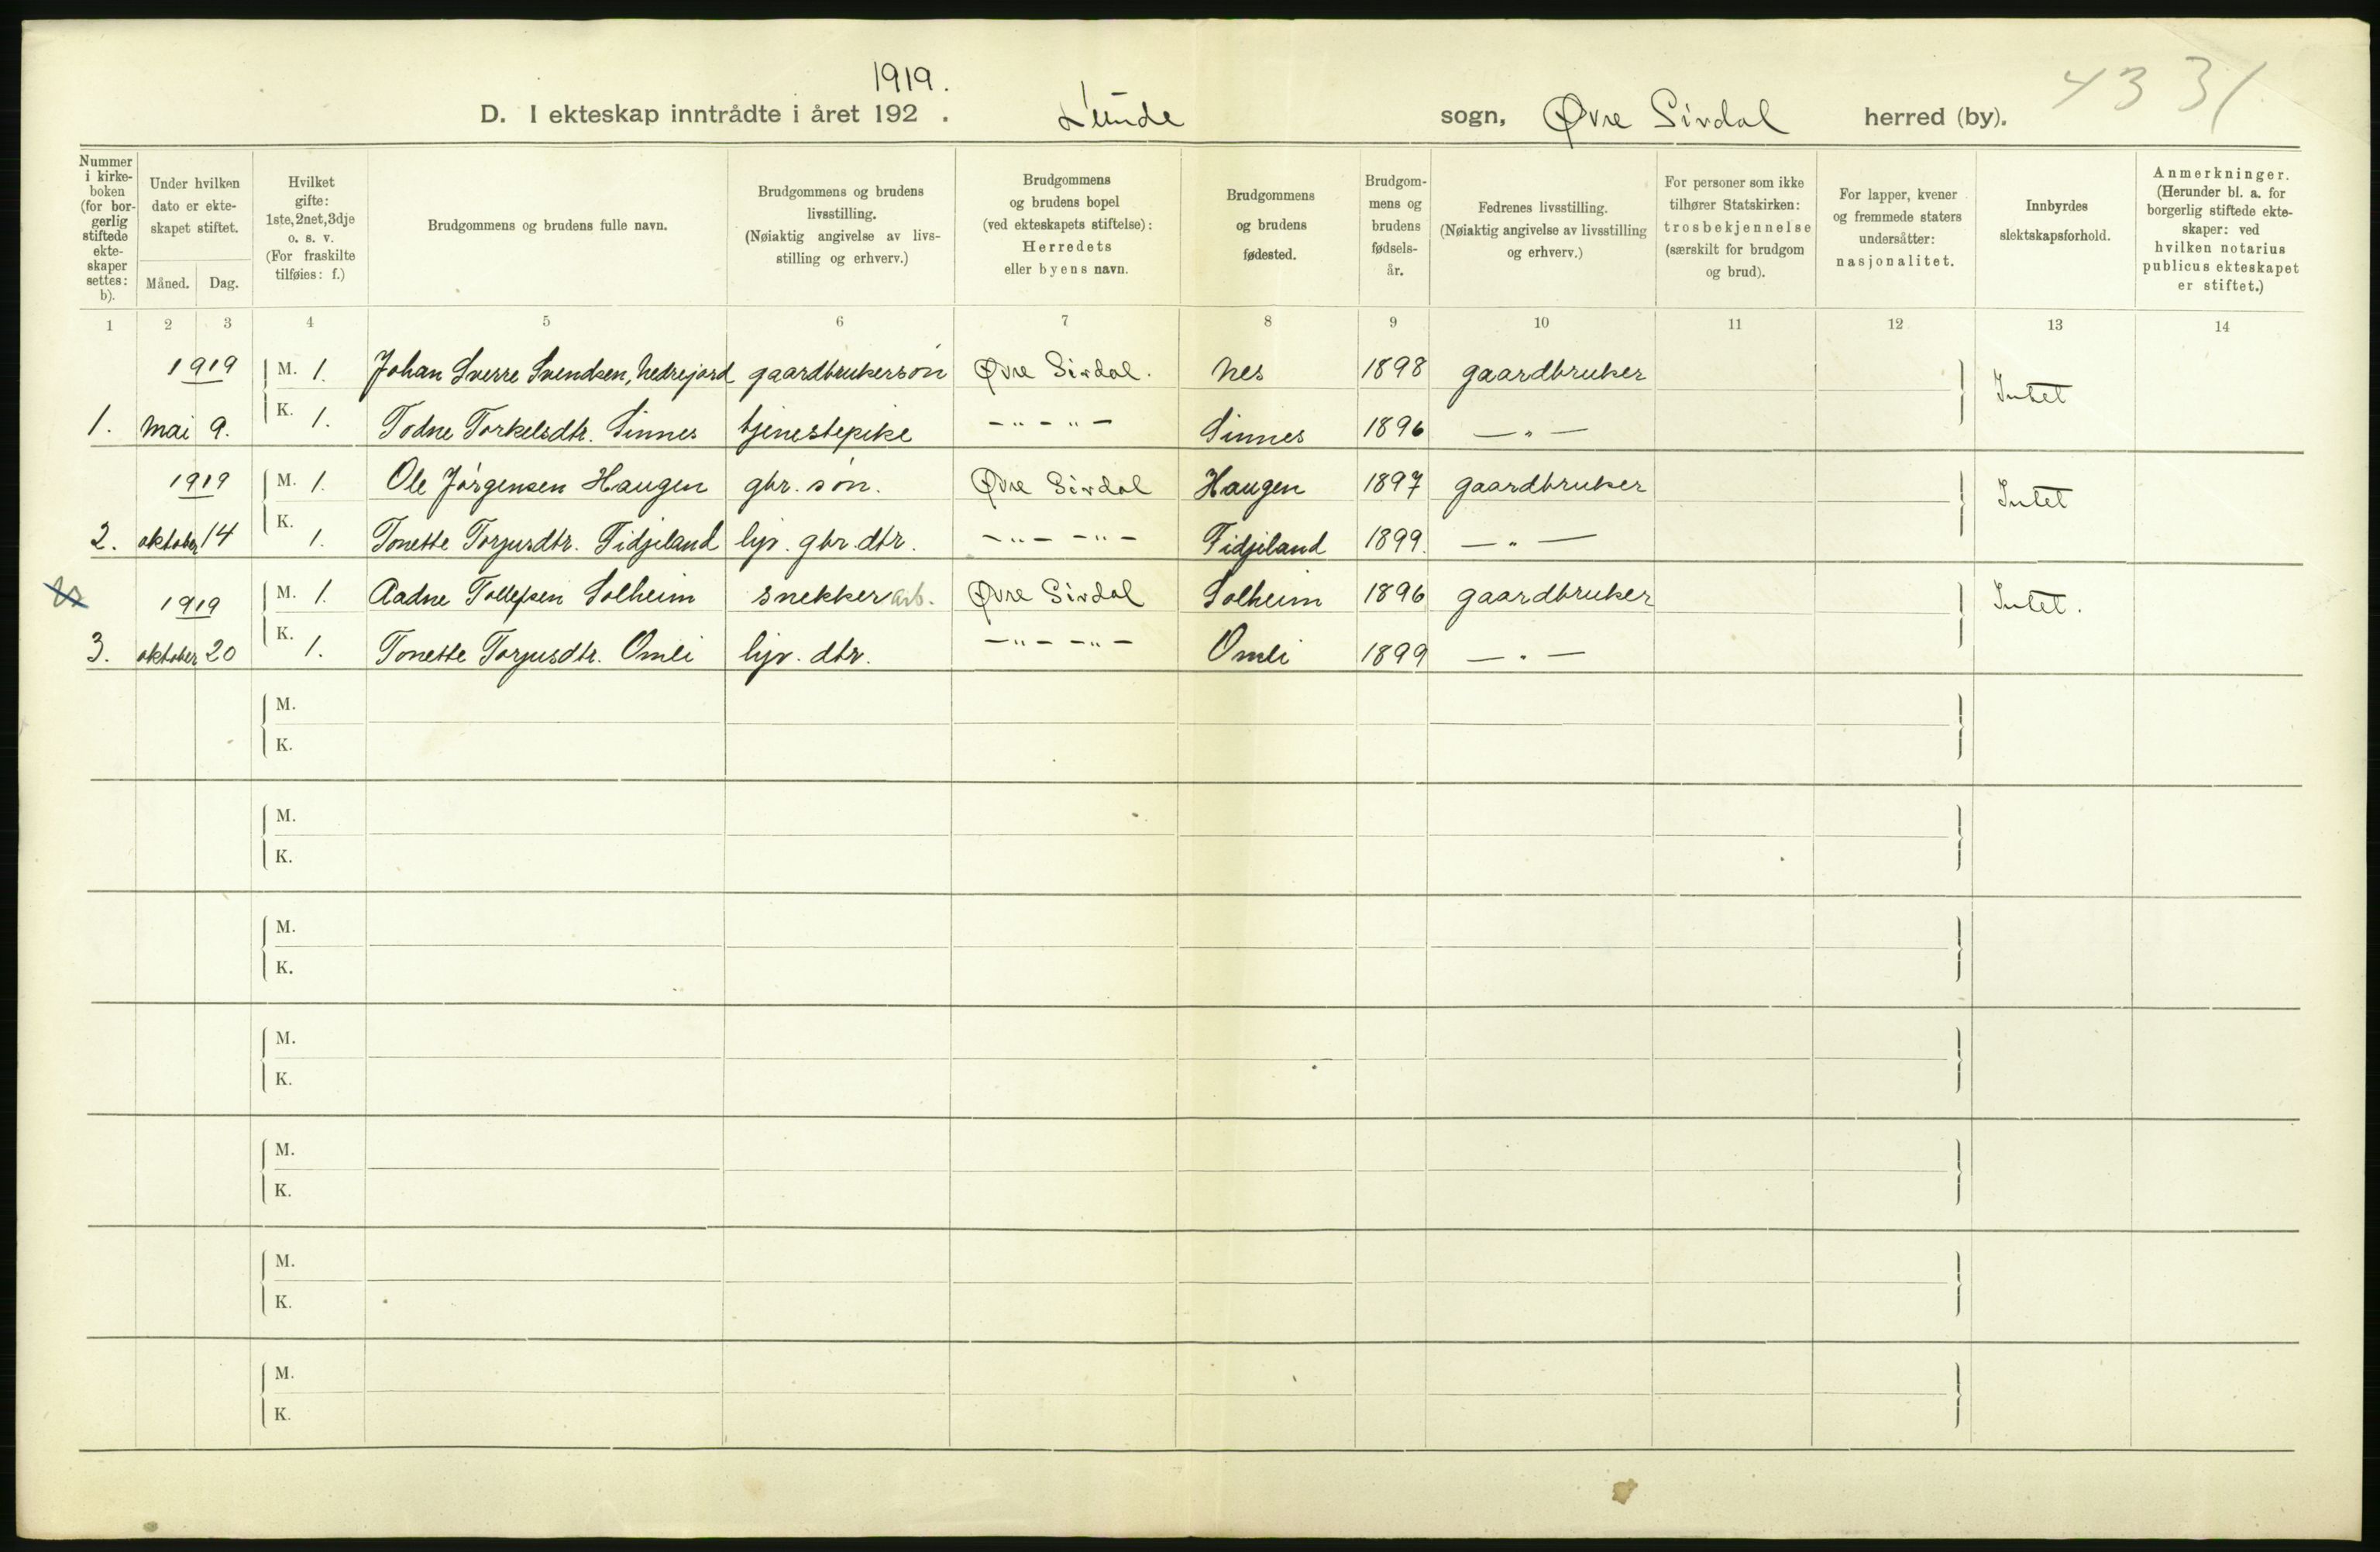 1919.
4331
D. I ekteskap inntrådte i året 192 . Lunde sogn, Øvre Sirdal herred (by).
Nummer i kirke-boken (for bor-gerlig stiftede ekte-skaper settes: b).
Under hvilken dato er ekte-skapet stiftet.
Måned. Dag.
Hvilket gifte: 1ste, 2net, 3dje o. s. v. (For fraskilte tilføies: f.)
Brudgommens og brudens fulle navn.
Brudgommens og brudens livsstilling. (Nøiaktig angivelse av livs-stilling og erhverv.)
Brudgommens og brudens bopel (ved ekteskapets stiftelse): Herredets eller byens navn.
Brudgommens og brudens fødested.
Brudgom-mens og brudens fødsels-år.
Fedrenes livsstilling. (Nøiaktig angivelse av livsstilling og erhverv.)
For personer som ikke tilhører Statskirken: trosbekjennelse (særskilt for brudgom og brud).
For lapper, kvener og fremmede staters undersåtter: nasjonalitet.
Innbyrdes slektskapsforhold.
Anmerkninger. (Herunder bl. a. for borgerlig stiftede ekte-skaper: ved hvilken notarius publicus ekteskapet er stiftet.)
1 2 3 4 5 6 7 8 9 10 11 12 13 14
1919 M. 1. Johan Sverre Svendsen, Nedrejord gaardbrukersøn Øvre Sirdal. Nes 1898 gaardbruker Intet
1. mai 9. K. 1. Todne Torkelsdtr. Sinnes tjenestepike -"-"- Sinnes 1896 —"—
1919 M. 1. Ole Jørgensen Haugen gbr. søn. Øvre Sirdal Haugen 1897 gaardbruker Intet
2. oktober 14 K. 1. Tonette Torjusdtr. Fidjeland hjv. gbr. dtr. -"- -"- Fidjeland 1899. —"—
1919 M. 1. Aadne Tollefsen Solheim snekker arb. Øvre Sirdal Solheim 1896 gaardbruker Intet.
3. oktober 20 K. 1. Tonette Torjusdtr. Omli hjv. dtr. -"- -"- Omli 1899 —"—
M.
K.
M.
K.
M.
K.
M.
K.
M.
K.
M.
K.
M.
K.